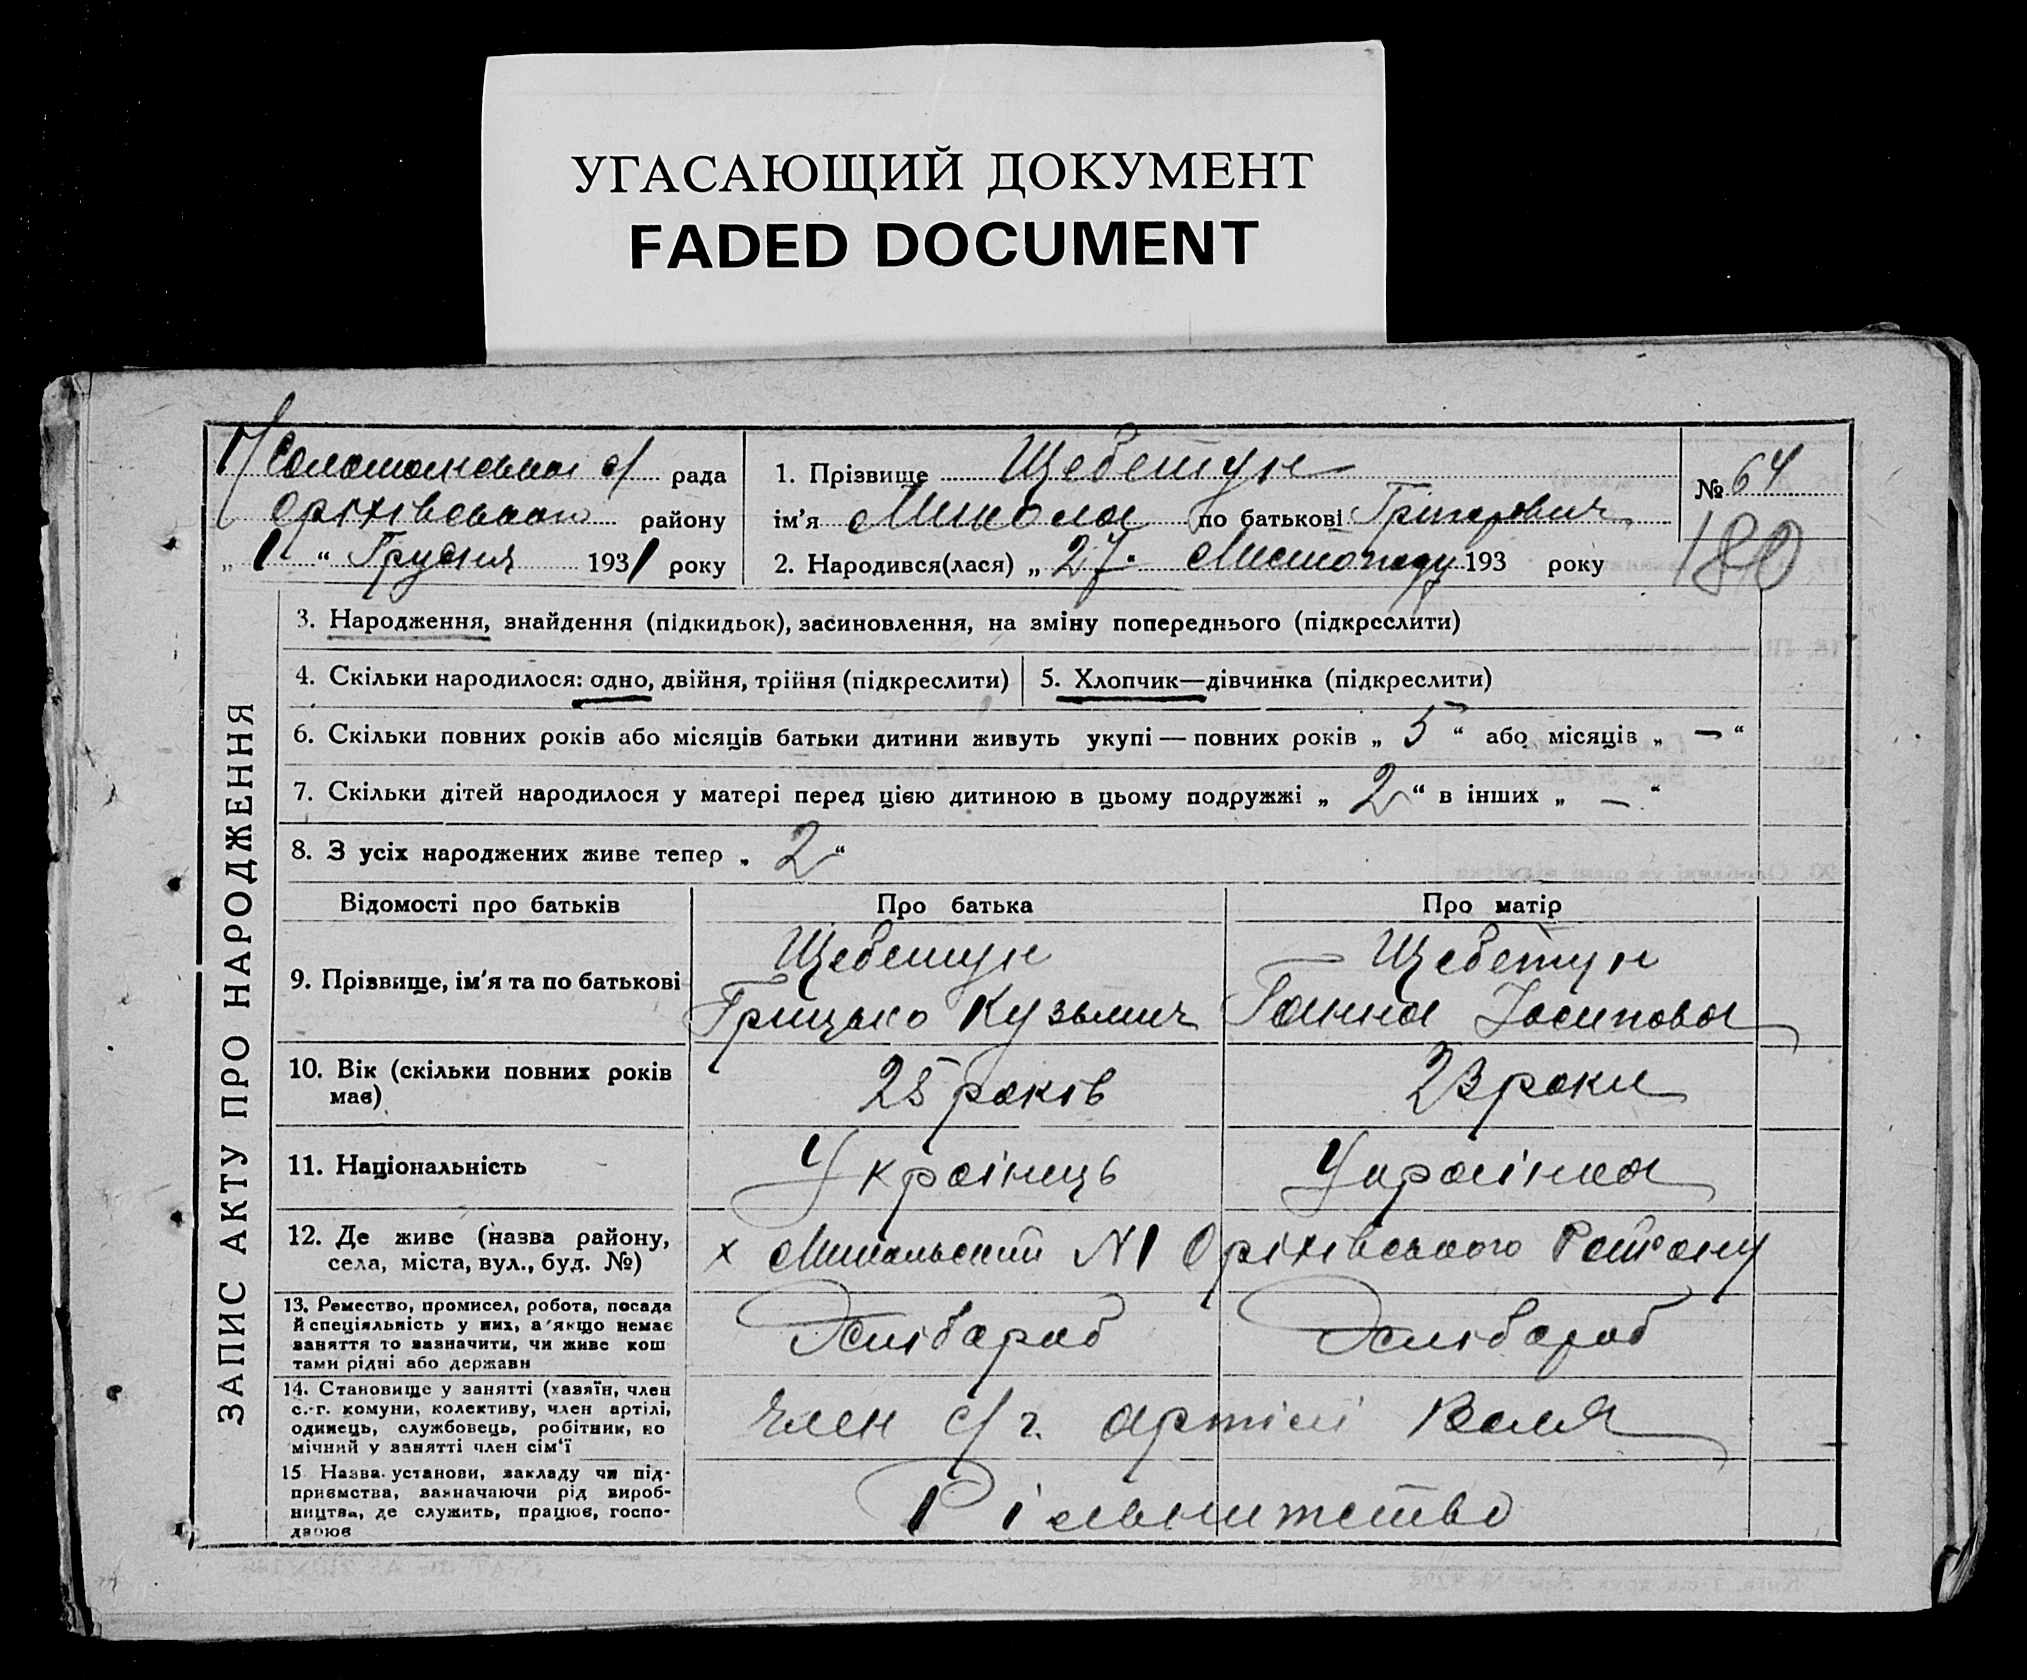 УГАСАЮЩИЙ ДОКУМЕНТ
FADED DOCUMENT
с/ рада
Оріхівського району
„ 1 “ Грудня 1931 року
1. Прізвище Щебетун
ім'я Микола по батькові Григорович
2. Народився(лася) „ 27 Листопаду 193 року
№ 64
180
ЗАПИС АКТУ ПРО НАРОДЖЕННЯ
3. Народження, знайдення (підкидьок), засиновлення, на зміну попереднього (підкреслити)
4. Скільки народилося: одно, двійня, трійня (підкреслити)
5. Хлопчик—дівчинка (підкреслити)
6. Скільки повних років або місяців батьки дитини живуть укупі — повних років „ 5 “ або місяців „ — “
7. Скільки дітей народилося у матері перед цією дитиною в цьому подружжі „ 2 “ в інших „ — “
8. З усіх народжених живе тепер „ 2 “
Відомості про батьків
Про батька
Про матір
9. Прізвище, ім'я та по батькові
Щебетун
Грицько Кузьмич
Щебетун
Ганна Йосипова
10. Вік (скільки повних років
має)
25 років
23 роки
11. Національність
Українець
Українка
12. Де живе (назва району,
села, міста, вул., буд. №)
х N1 Оріхівського Району
13. Ремество, промисел, робота, посада
й спеціяльність у них, а якщо немає
заняття то зазначити, чи живе кош
тами рідні або держави
Хлібороб
Хлібороб
14. Становище у занятті (хазяїн, член
с.-г. комуни, колективу, член артілі,
одинець, службовець, робітник, по
мічний у занятті член сім'ї
Член с/г. артілі Воля
15 Назва установи, закладу чи під-
приємства, зазначаючи рід вироб-
ництва, де служить, працює, госпо-
дарює
Рільництво